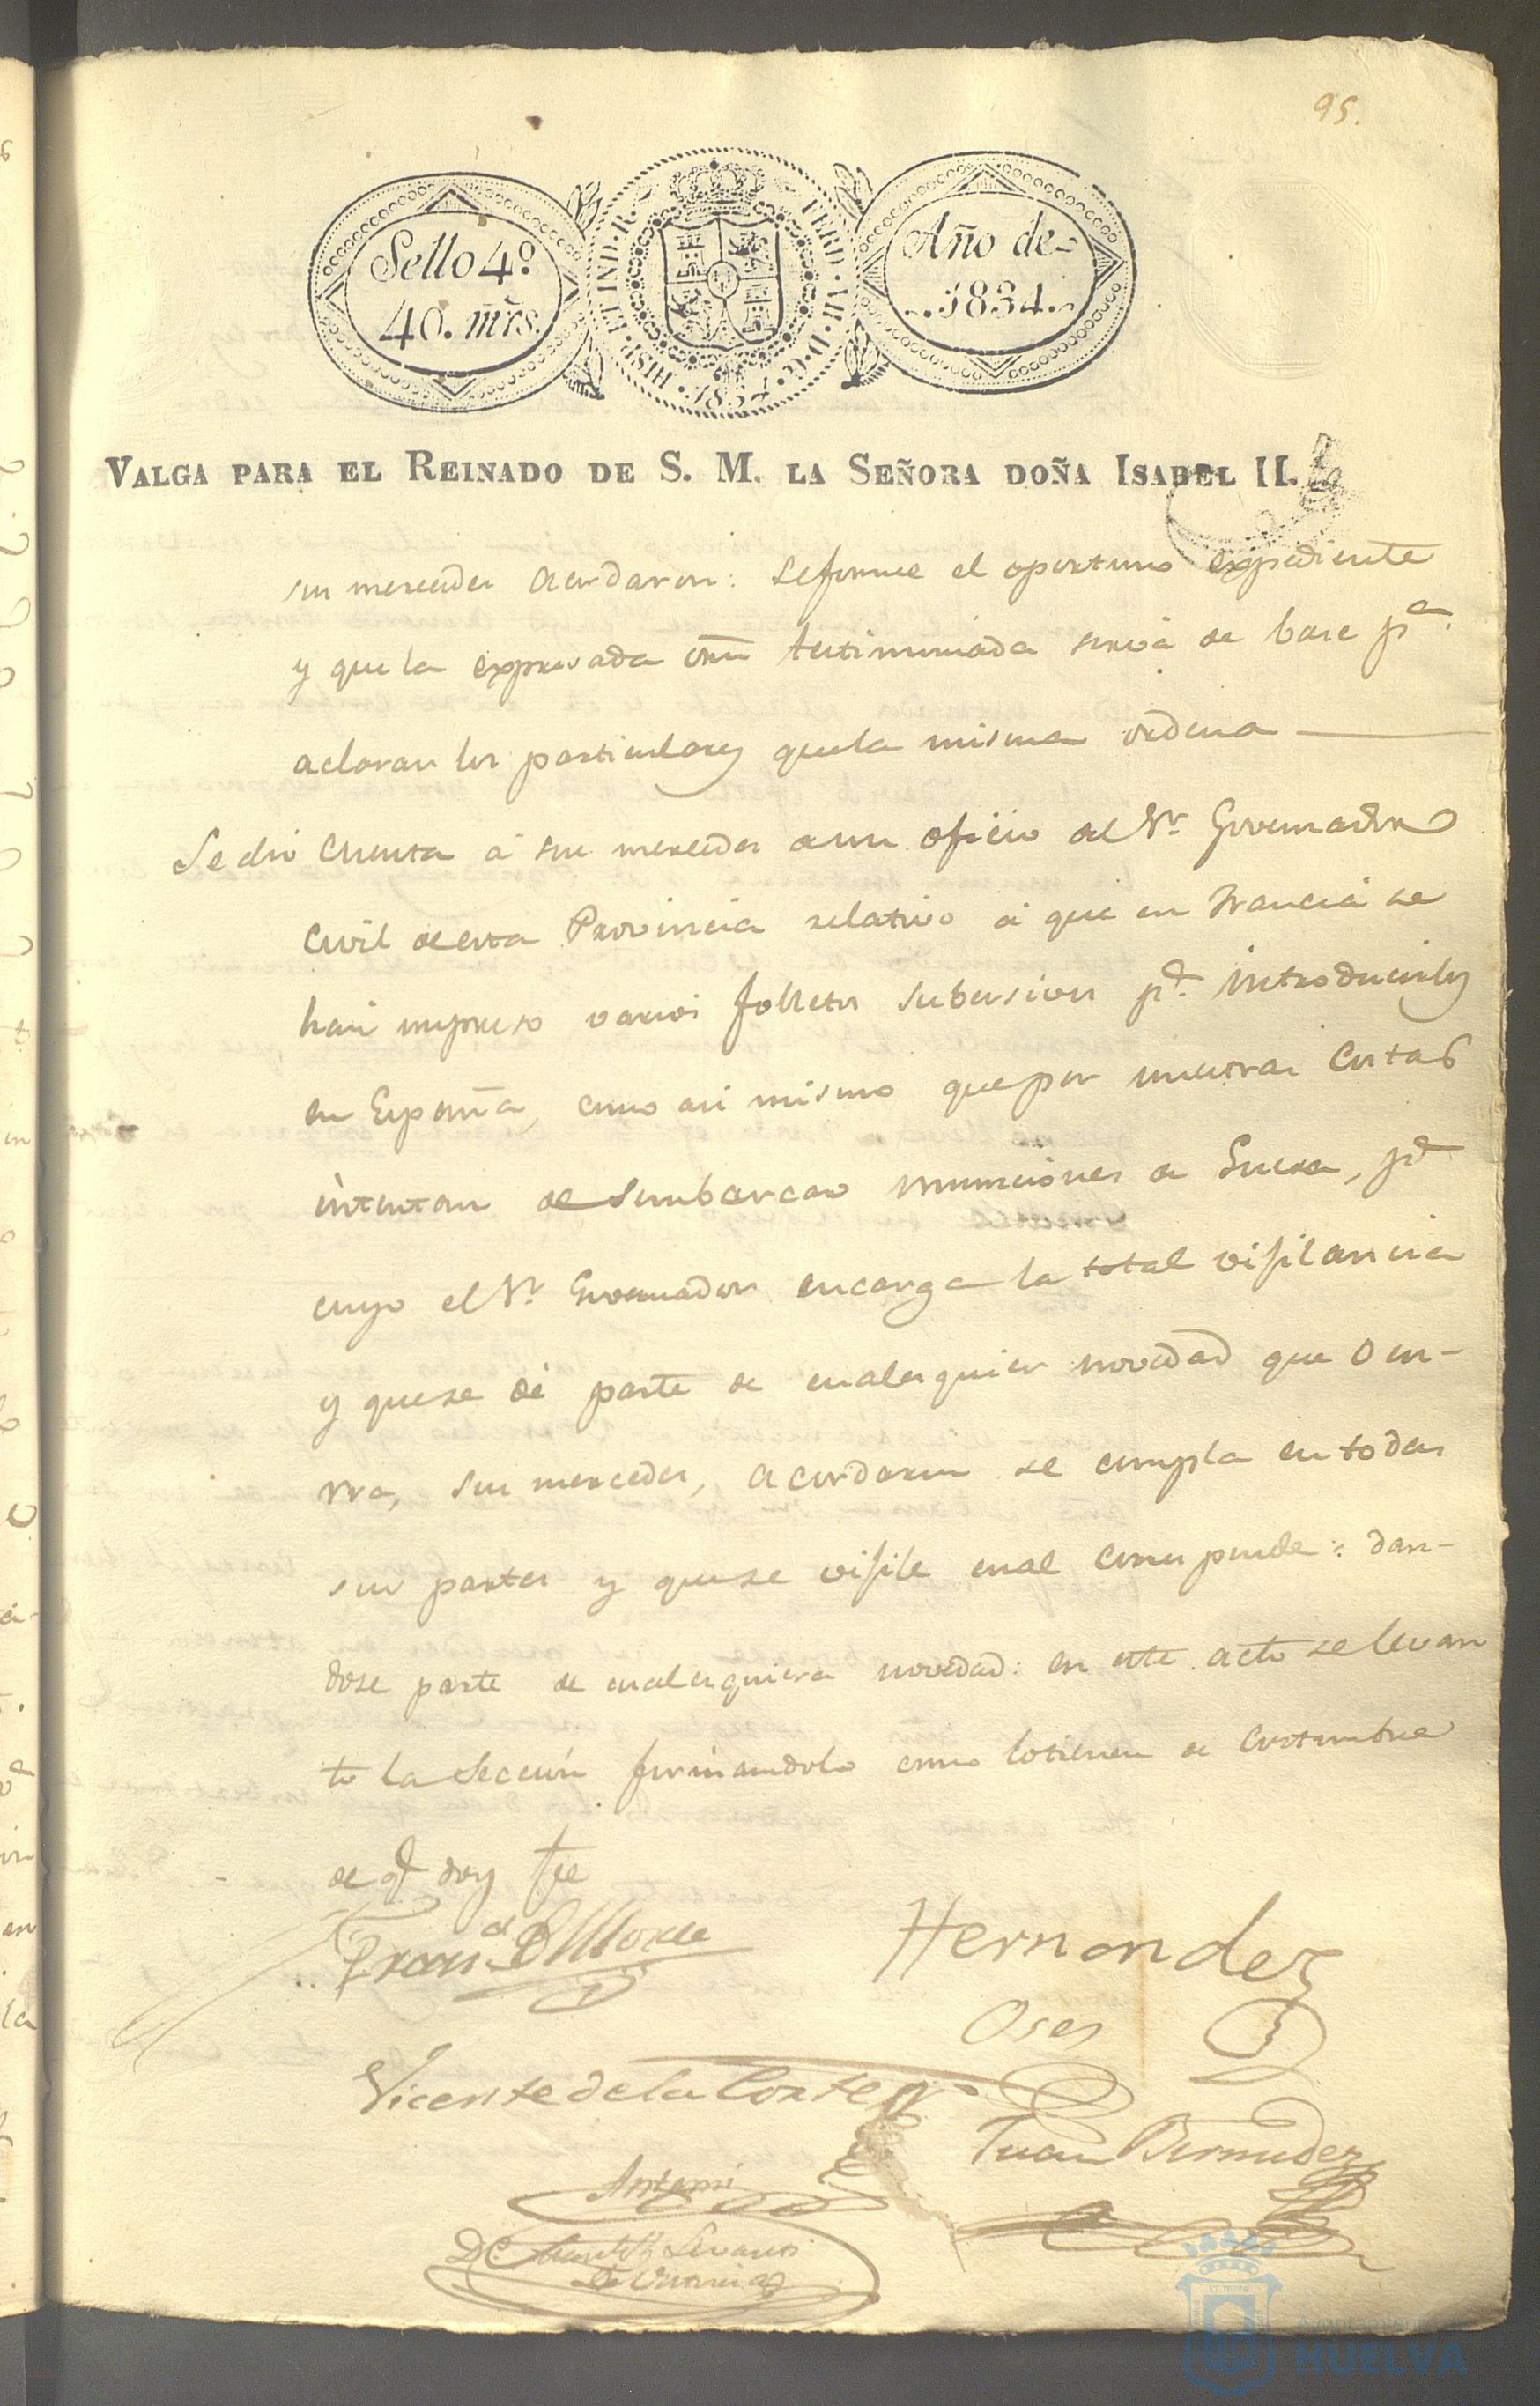 95.
Sello 4º
40. mrs.
HISP. ET IND. R. FERD. VII. D. G. 1834.
Año de
1834.
VALGA PARA EL REINADO DE S. M. LA SEÑORA DOÑA ISABEL II.
sus mercedes acordaron: se forme el oportuno expediente
y que la expresada orn testimoniada sirva de base pª
aclarar los particulares que la misma ordena
Se dio cuenta á sus mercedes de un oficio del Sr. Governador
Civil de esta Provincia relativo á que en Francia se
han impreso varios folletos subersivos pª introducirlos
en España, como asi mismo que por nuestras Costas
intentan desembarcar municiones de Guerra, pª
cuyo el Sr. Governador encarga la total vijilancia
y que se dé parte de cualesquier novedad que ocu-
rra, sus mercedes, acordaron se cumpla en todas
sus partes y que se vijile cual corresponde: dan-
dose parte de cualesquiera novedad: en este acto se levan
to la Sección firmandolo como lo tienen de costumbre
de q doy fee
Hernandez
Oses
Vicente de la Corte
Juan Bermudez
Antemi
Ayuntamiento de
HUELVA